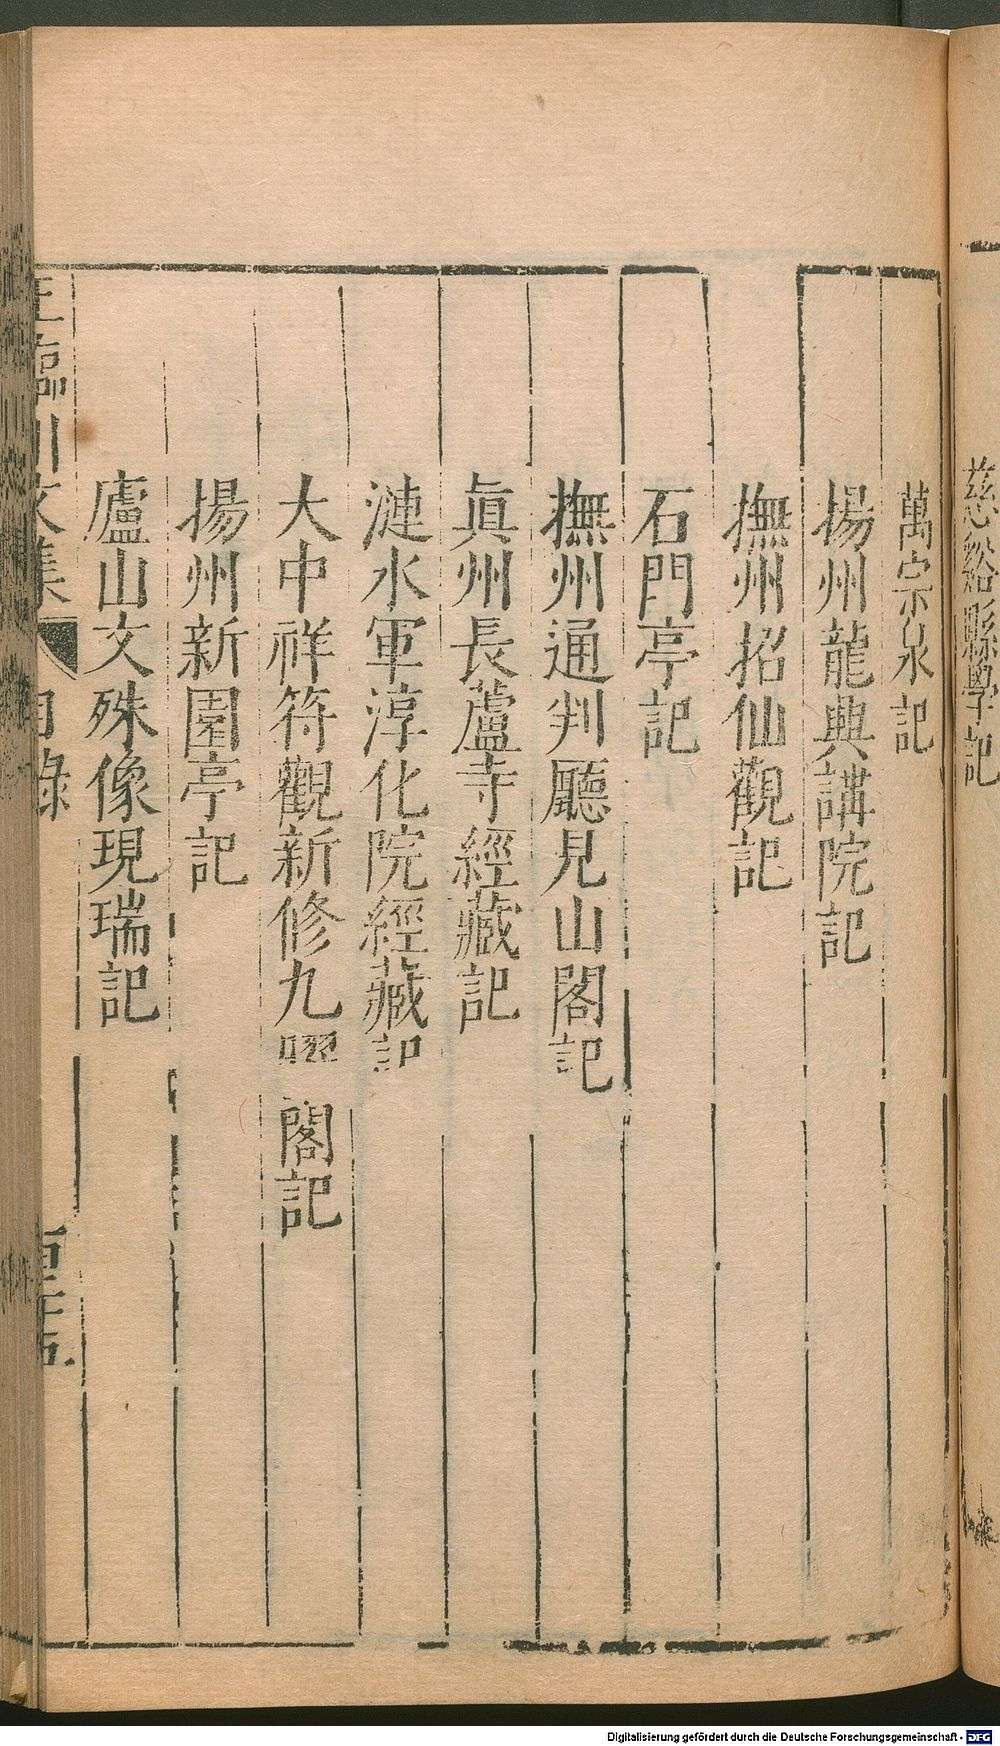 慈谿縣學記
萬宗泉記
揚州龍興講院記
撫州招仙觀記
石門亭記
撫州通判廳見山閣記
眞州長蘆寺經藏記
漣水軍淳化院經藏記
大中祥符觀新修九曜閣記
揚州新園亭記
廬山文殊像現瑞記
王臨川文集 目錄
Digitalisierung gefördert durch die Deutsche Forschungsgemeinschaft - DFG